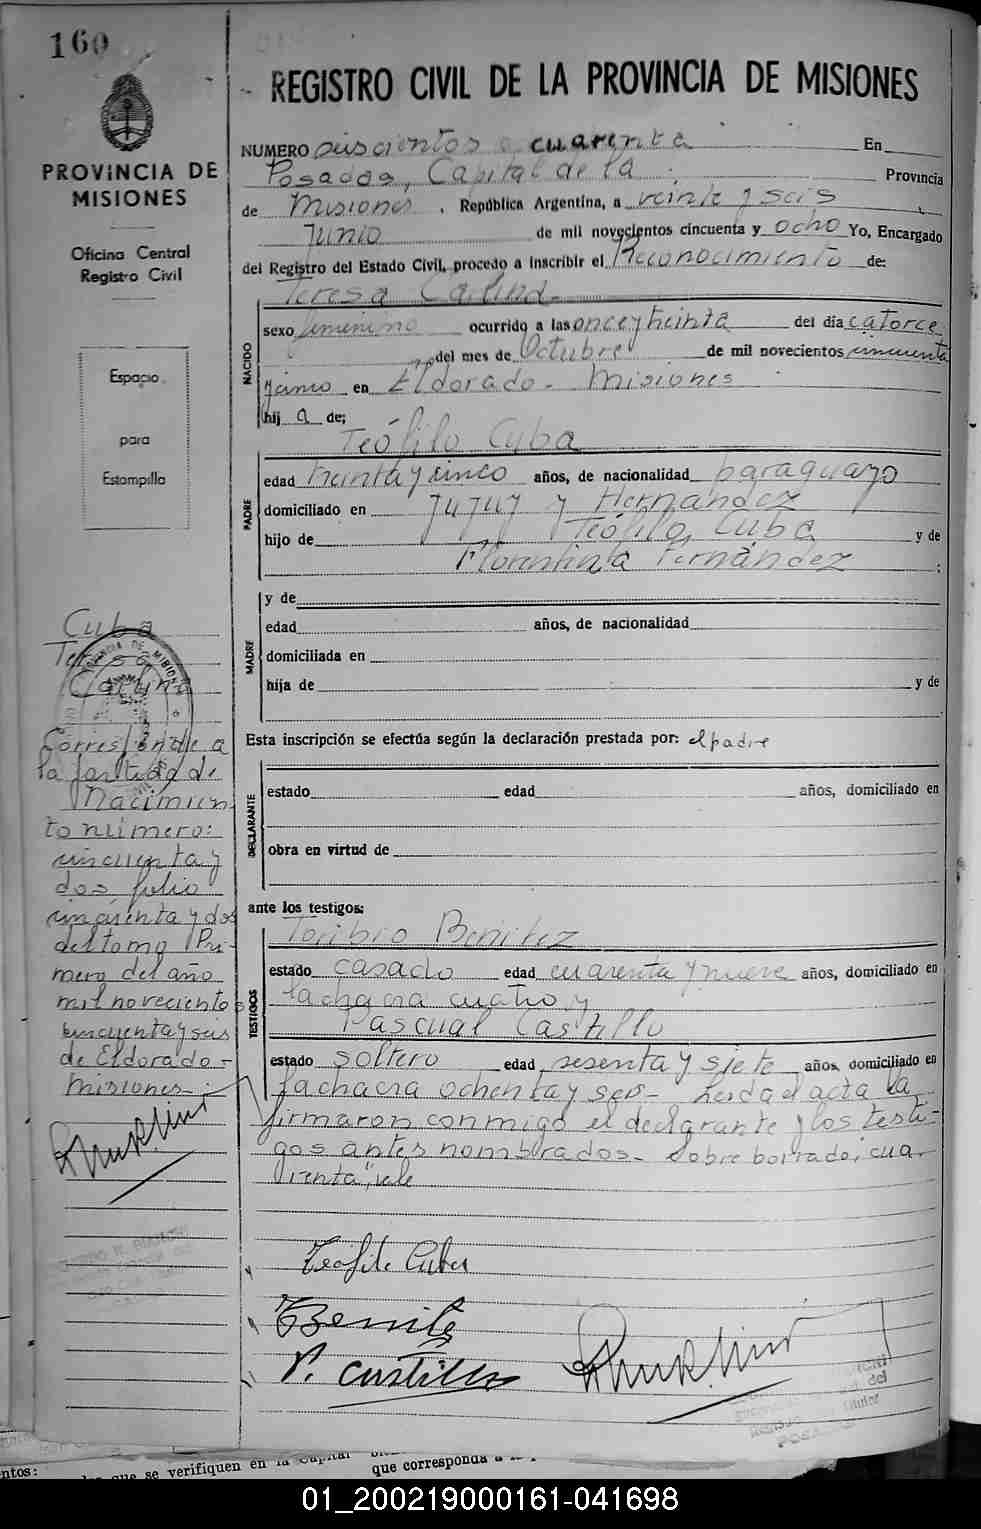 160
REGISTRO CIVIL DE LA PROVINCIA DE MISIONES
PROVINCIA DE
MISIONES
Oficina Central
Registro Civil
Espacio
para
Estampilla
NUMERO seiscientos cuarenta En
Posadas, Capital de la Provincia
de Misiones, República Argentina, a veinte y seis
Junio de mil novecientos cincuenta y ocho Yo, Encargado
del Registro del Estado Civil, procedo a inscribir el Reconocimiento de:
Teresa Catina
NACIDO
sexo femenino ocurrido a las once y treinta del día catorce
del mes de Octubre de mil novecientos cincuenta
y cinco en Eldorado - Misiones
hij a de;
Teófilo Cuba
PADRE
edad treinta y cinco años, de nacionalidad paraguayo
domiciliado en Jujuy y Hernandez
hijo de Teófilo Cuba y de
Florentina Fernández
MADRE
y de
edad años, de nacionalidad
domiciliada en
hija de y de
Esta inscripción se efectúa según la declaración prestada por: el padre
DECLARANTE
estado edad años, domiciliado en
obra en virtud de
ante los testigos:
Toribio Benitez
TESTIGOS
estado casado edad cuarenta y nueve años, domiciliado en
la chacra cuatro y
Pascual Castillo
estado soltero edad sesenta y siete años, domiciliado en
la chacra ochenta y seis - Leida el acta la
firmaron conmigo el declarante y los testi-
gos antes nombrados - Sobre borrado: cua-
renta", vale
Cuba
Teresa
Catina
Corresponde a
la partida de
Nacimien
to número:
cincuenta y
dos, folio
cincuenta y dos
del tomo Pri-
mero del año
mil noveciento
cincuenta y seis
de Eldorado -
Misiones -
Teofilo Cuba
TBenite
P. Castillo
se verifiquen en la Capital
que corresponda
01_200219000161-041698